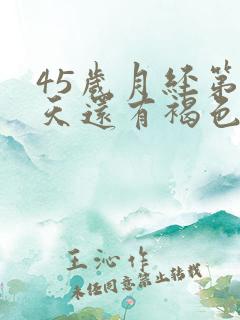 45岁月经第
天还有褐色
王沁作
未经同意禁止转载